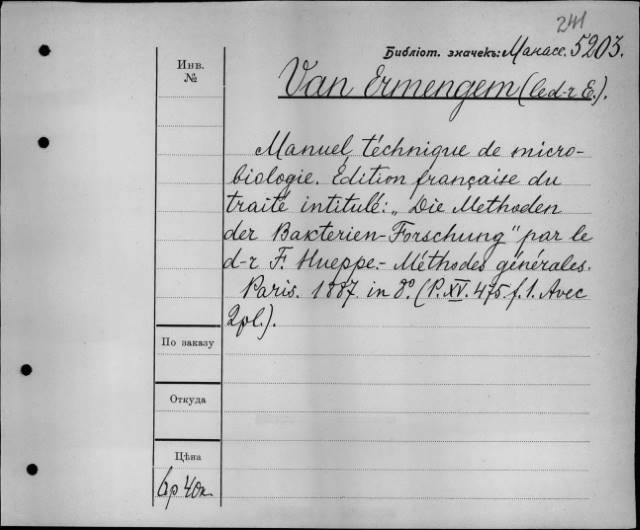 241
Библіот. значекъ: Манасс. 5203.
Инв.
№
Van Ermengem (le d-r E.).
Manuel téchnique de micro-
biologie. Édition française du
traité intitulé: „Die Methoden
der Bakterien-Forschung" par le
d-r F. Hueppe.- Méthodes générales.
Paris. 1887. in 8°. (P. XV. 475. f. 1. Avec
2 pl.).
По заказу
Откуда
Цѣна
6р 40к